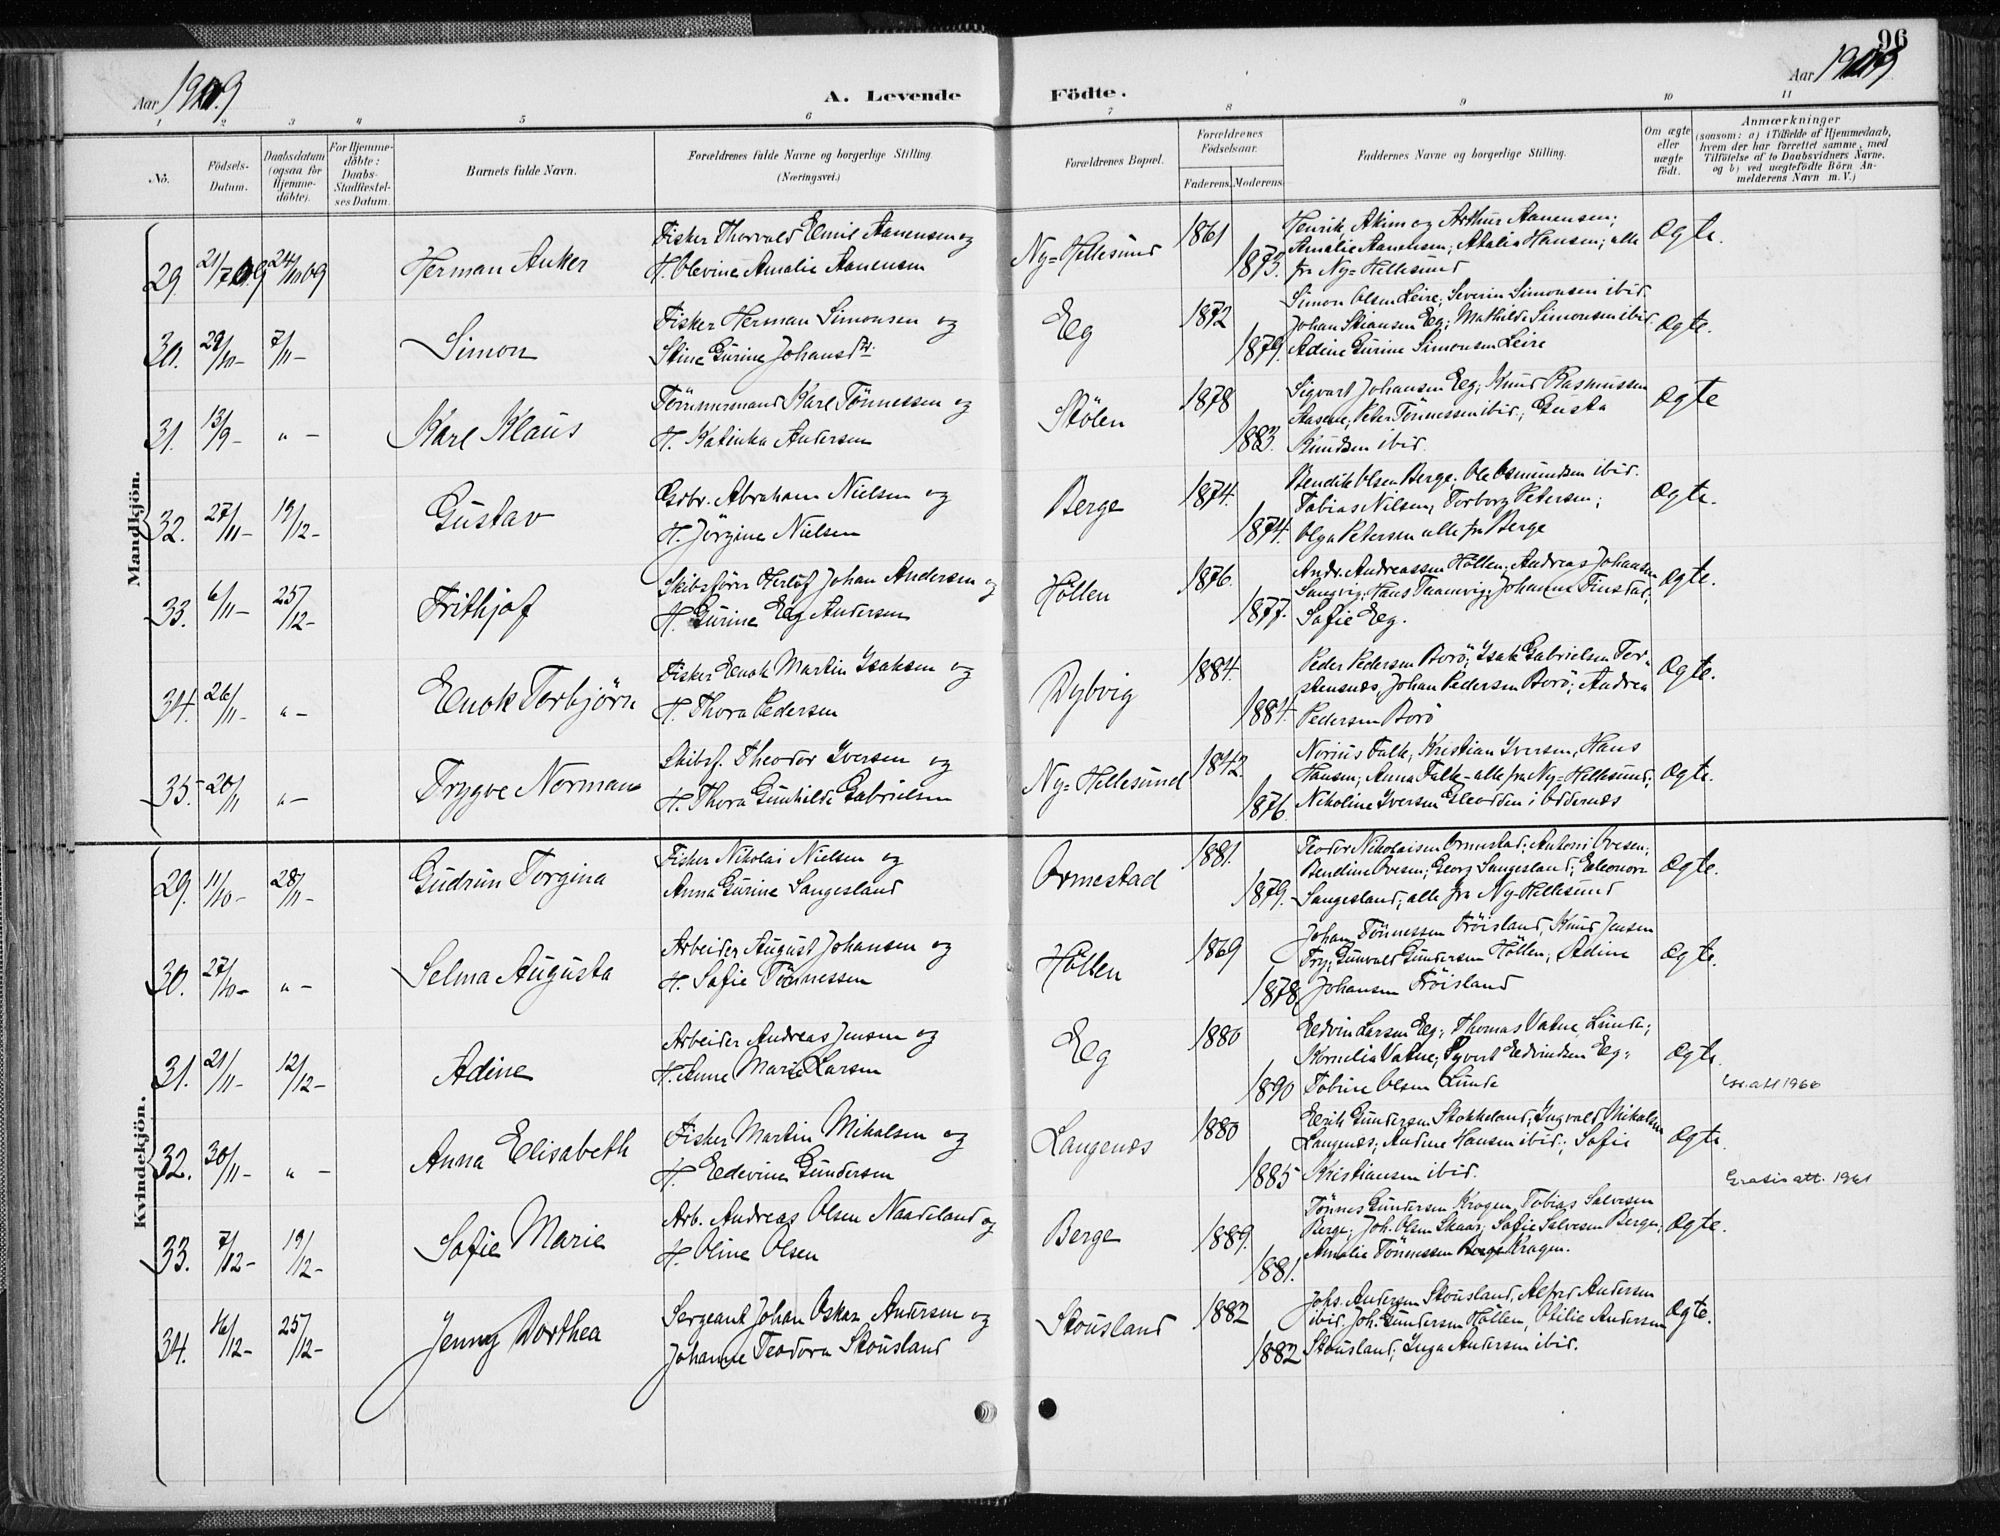 96
Aar 1909
A. Levende Födte.
Aar 1909
1 2 3 4 5 6 7 8 9 10 11
No.
Födsels-Datum.
Daabsdatum (ogsaa for Hjemme-döbte).
For Hjemme-döbte: Daabs-Stadfæstel-ses Datum.
Barnets fulde Navn.
Forældrenes fulde Navne og borgerlige Stilling. (Næringsvei.)
Forældrenes Bopæl.
Forældrenes Födselsaar.
Faderens. Moderens.
Faddernes Navne og borgerlige Stilling.
Om ægte eller uægte födt.
Anmærkninger (saasom: a) i Tilfælde af Hjemmedaab, hvem der har forrettet samme, med Tilföielse af to Daabsvidners Navne, og b) ved uægtefödte Börn Anmelderens Navn m. V.)
Mandkjön.
29. 21/7 09 24/10 09 Herman Anker
Fisker Thorvald Emil Aanensen og
H. Olevine Amalie Aanensen
Ny-Hellesund 1861 1873.
Henrik, Akim og Arthur Aanensen;
Amalie Aanensen; Atalia Hansen; alle
fra Ny-Hellesund
ægte.
30. 29/10- 7/11- Simon
Fisker Herman Simonsen og
Stine Gurine Johansdt.
Eg 1872 1879.
Simon Olsen Leire; Severin Simonsen ibid.
Johan Stiansen Eg; Mathilde Simonsen ibid
Adine Gurine Simonsen Leire
ægte.
31. 13/9- " - Karl Klaus
Tömmermand Karl Tönnessen og
H. Katinka Andersen
Stölen 1878 1883.
Sigvart Johansen Eg; Knud Rasmussen
Peter Tönnessen ibid; Gusta
Knudsen ibid.
ægte
32. 27/11- 19/12- Gustav
Gdbr. Abraham Nielsen og
H. Jörgine Nielsen
Berge 1874. 1874.
Bendik Olsen Berge, Ole Osmundsen ibid.
Tobias Nilsen, Torborg Petersen;
Olga Petersen alle fra Berge
ægte.
33. 6/11- 25/12- Frithjof
Skibsförer Herlof Johan Andersen og
H. Gurine Eg Andersen
Höllen 1876. 1877.
Andr. Andreassen Höllen; Andreas Johansen
Langvig; Hans Johanne Finstad,
Sofie Eg.
ægte.
34. 26/11- " - Enok Torbjörn
Fisker Enok Martin Isaksen og
H. Thora Pedersen
Dybvig 1884. 1884.
Peder Pedersen Borö; Isak Gabrielsen Tor-
stensnæs, Johan Pedersen Borö; Andrea
Pedersen Borö
ægte.
35. 20/11 " - Trygve Norman
Skibsf. Theodor Iversen og
H. Thora Gunhilde Gabrielsen
Ny-Hellesund 1842. 1876.
Norius Falk, Kristian Iversen, Hans
Hansen; Anna Falk - alle fra Ny-Hellesund;
Nikoline Iversen i Oddernæs
ægte.
Kvindekjön.
29. 11/10- 28/11- Gudrun Torgina
Fisker Nikolai Nielsen og
Anna Gurine Sangesland
Ormestad 1881. 1879.
Teodor Nikolaisen Ormestad; Antoni Ovesen;
Bendine Ovesen; Georg Sangesland; Eleonore
Sangesland; alle fra Ny-Hellesund
ægte.
30. 27/10- " - Selma Augusta
Arbeider August Johansen og
H. Sofie Tönnessen
Höllen 1869 1878.
Johan Tönnessen Fröisland, Knud Jensen
Try; Gunvald Gundersen Höllen; Adine
Johansen Fröisland
ægte.
31. 21/11- 12/12- Adine
Arbeider Andreas Jensen og
H. Anne Marie Larsen
Eg 1880 1890
Edvin Larsen Eg; Thomas Vatne, Lunde;
Kornelia Vatne; Syvert Edvindsen Eg;
Tobine Olsen Lunde
ægte.
att 1966
32. 30/11- " - Anna Elisabeth
Fisker Martin Mikalsen og
H. Edevine Gundersen
Langenæs 1880 1885
Erik Gundersen Stokkeland; Ingvald Mikalsen
Langenæs; Andine Hansen ibid; Sofie
Kristiansen ibid.
ægte.
Gratis att. 1961
33. 7/12- 19/12- Sofie Marie
Arb. Andreas Olsen Naadeland og
H. Oline Olsen
Berge 1889. 1881.
Tönnes Gundersen Kragen, Tobias Salvesen
Berge; Joh. Olsen Skaar; Sofie Salvesen Berge;
Amalie Tönnessen Kragen.
ægte.
34. 16/12- 25/12- Jenny Dorthea
Sergeant Johan Oskar Andersen og
Johanne Teodora Skousland
Skousland 1882 1882
Johs. Andersen Skousland, Alfred Andersen
ibid. Joh. Gundersen Höllen, Otilie Andersen
Skousland; Inga Andersen ibid.
ægte.